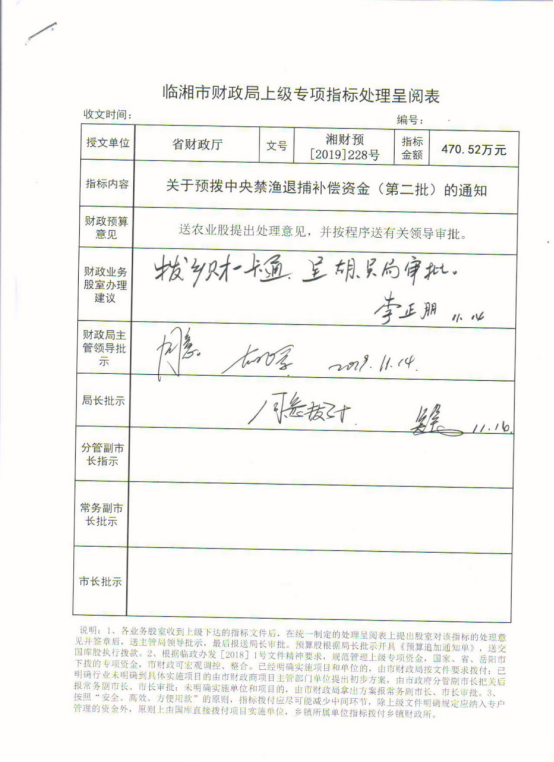 临湘市财政局上级专项指标处理呈阅表
收文时间：
编号：
授文单位 省财政厅 文号 湘财预[2019]228号 指标金额 470.52万元
指标内容 关于预拨中央禁渔退捕补偿资金（第二批）的通知
财政预算意见 送农业股提出处理意见，并按程序送有关领导审批。
财政业务股室办理建议 拨乡财一卡通、呈胡、吴局审批。
李正朋 11.14
财政局主管领导批示 同意。 2019.11.14.
局长批示 同意拨付 11.16.
分管副市长指示
常务副市长批示
市长批示
说明：1、各业务股室收到上级下达的指标文件后，在统一制定的处理呈阅表上提出股室对该指标的处理意
见并签章后，送主管局领导批示，最后报送局长审批。预算股根据局长批示开具《预算追加通知单》，送交
国库股执行拨款。2、根据临政办发［2018］1号文件精神要求，规范管理上级专项资金，国家、省、岳阳市
下拨的专项资金，市财政可宏观调控、整合。已经明确实施项目和单位的，由市财政局按文件要求拨付；已
明确行业未明确到具体实施项目的由市财政商项目主管部门单位提出初步方案，由市政府分管副市长把关后
报常务副市长、市长审批；未明确实施单位和项目的，由市财政局拿出方案报常务副市长、市长审批。3、
按照“安全、高效、方便用款”的原则，指标拨付应尽可能减少中间环节，除上级文件明确规定应纳入专户
管理的资金外，原则上由国库直接拨付项目实施单位，乡镇所属单位指标拨付乡镇财政所。